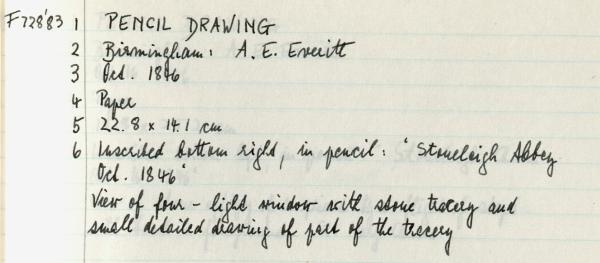 F728'83 1 PENCIL DRAWING
2 Birmingham: A. E. Everitt
3 Oct. 1846
4 Paper
5 22.8 x 14.1 cm
6 Inscribed bottom right, in pencil: 'Stoneleigh Abbey
Oct. 1846'
View of four-light window with stone tracery and
small detailed drawing of part of the tracery